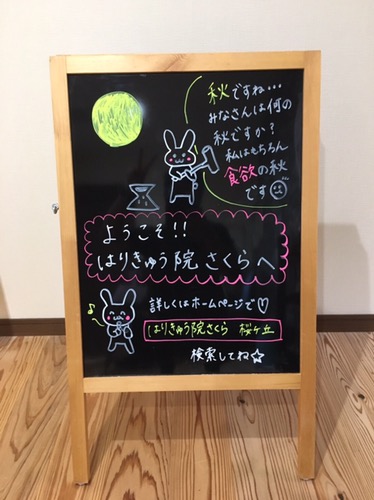 秋ですね…
みなさんは何の
秋ですか?
私はもちろん
食欲の秋
です
ようこそ!!
はりきゅう院さくらへ
詳しくはホームページで♡
はりきゅう院さくら 桜ヶ丘
検索してね☆